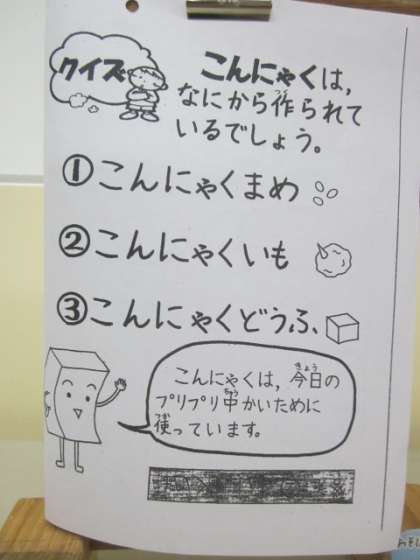 クイズ
こんにゃくは,
なにから作られて
いるでしょう。
①こんにゃくまめ
②こんにゃくいも
③こんにゃくどうふ、
こんにゃくは,今日の
プリプリ中かいために
使っています。